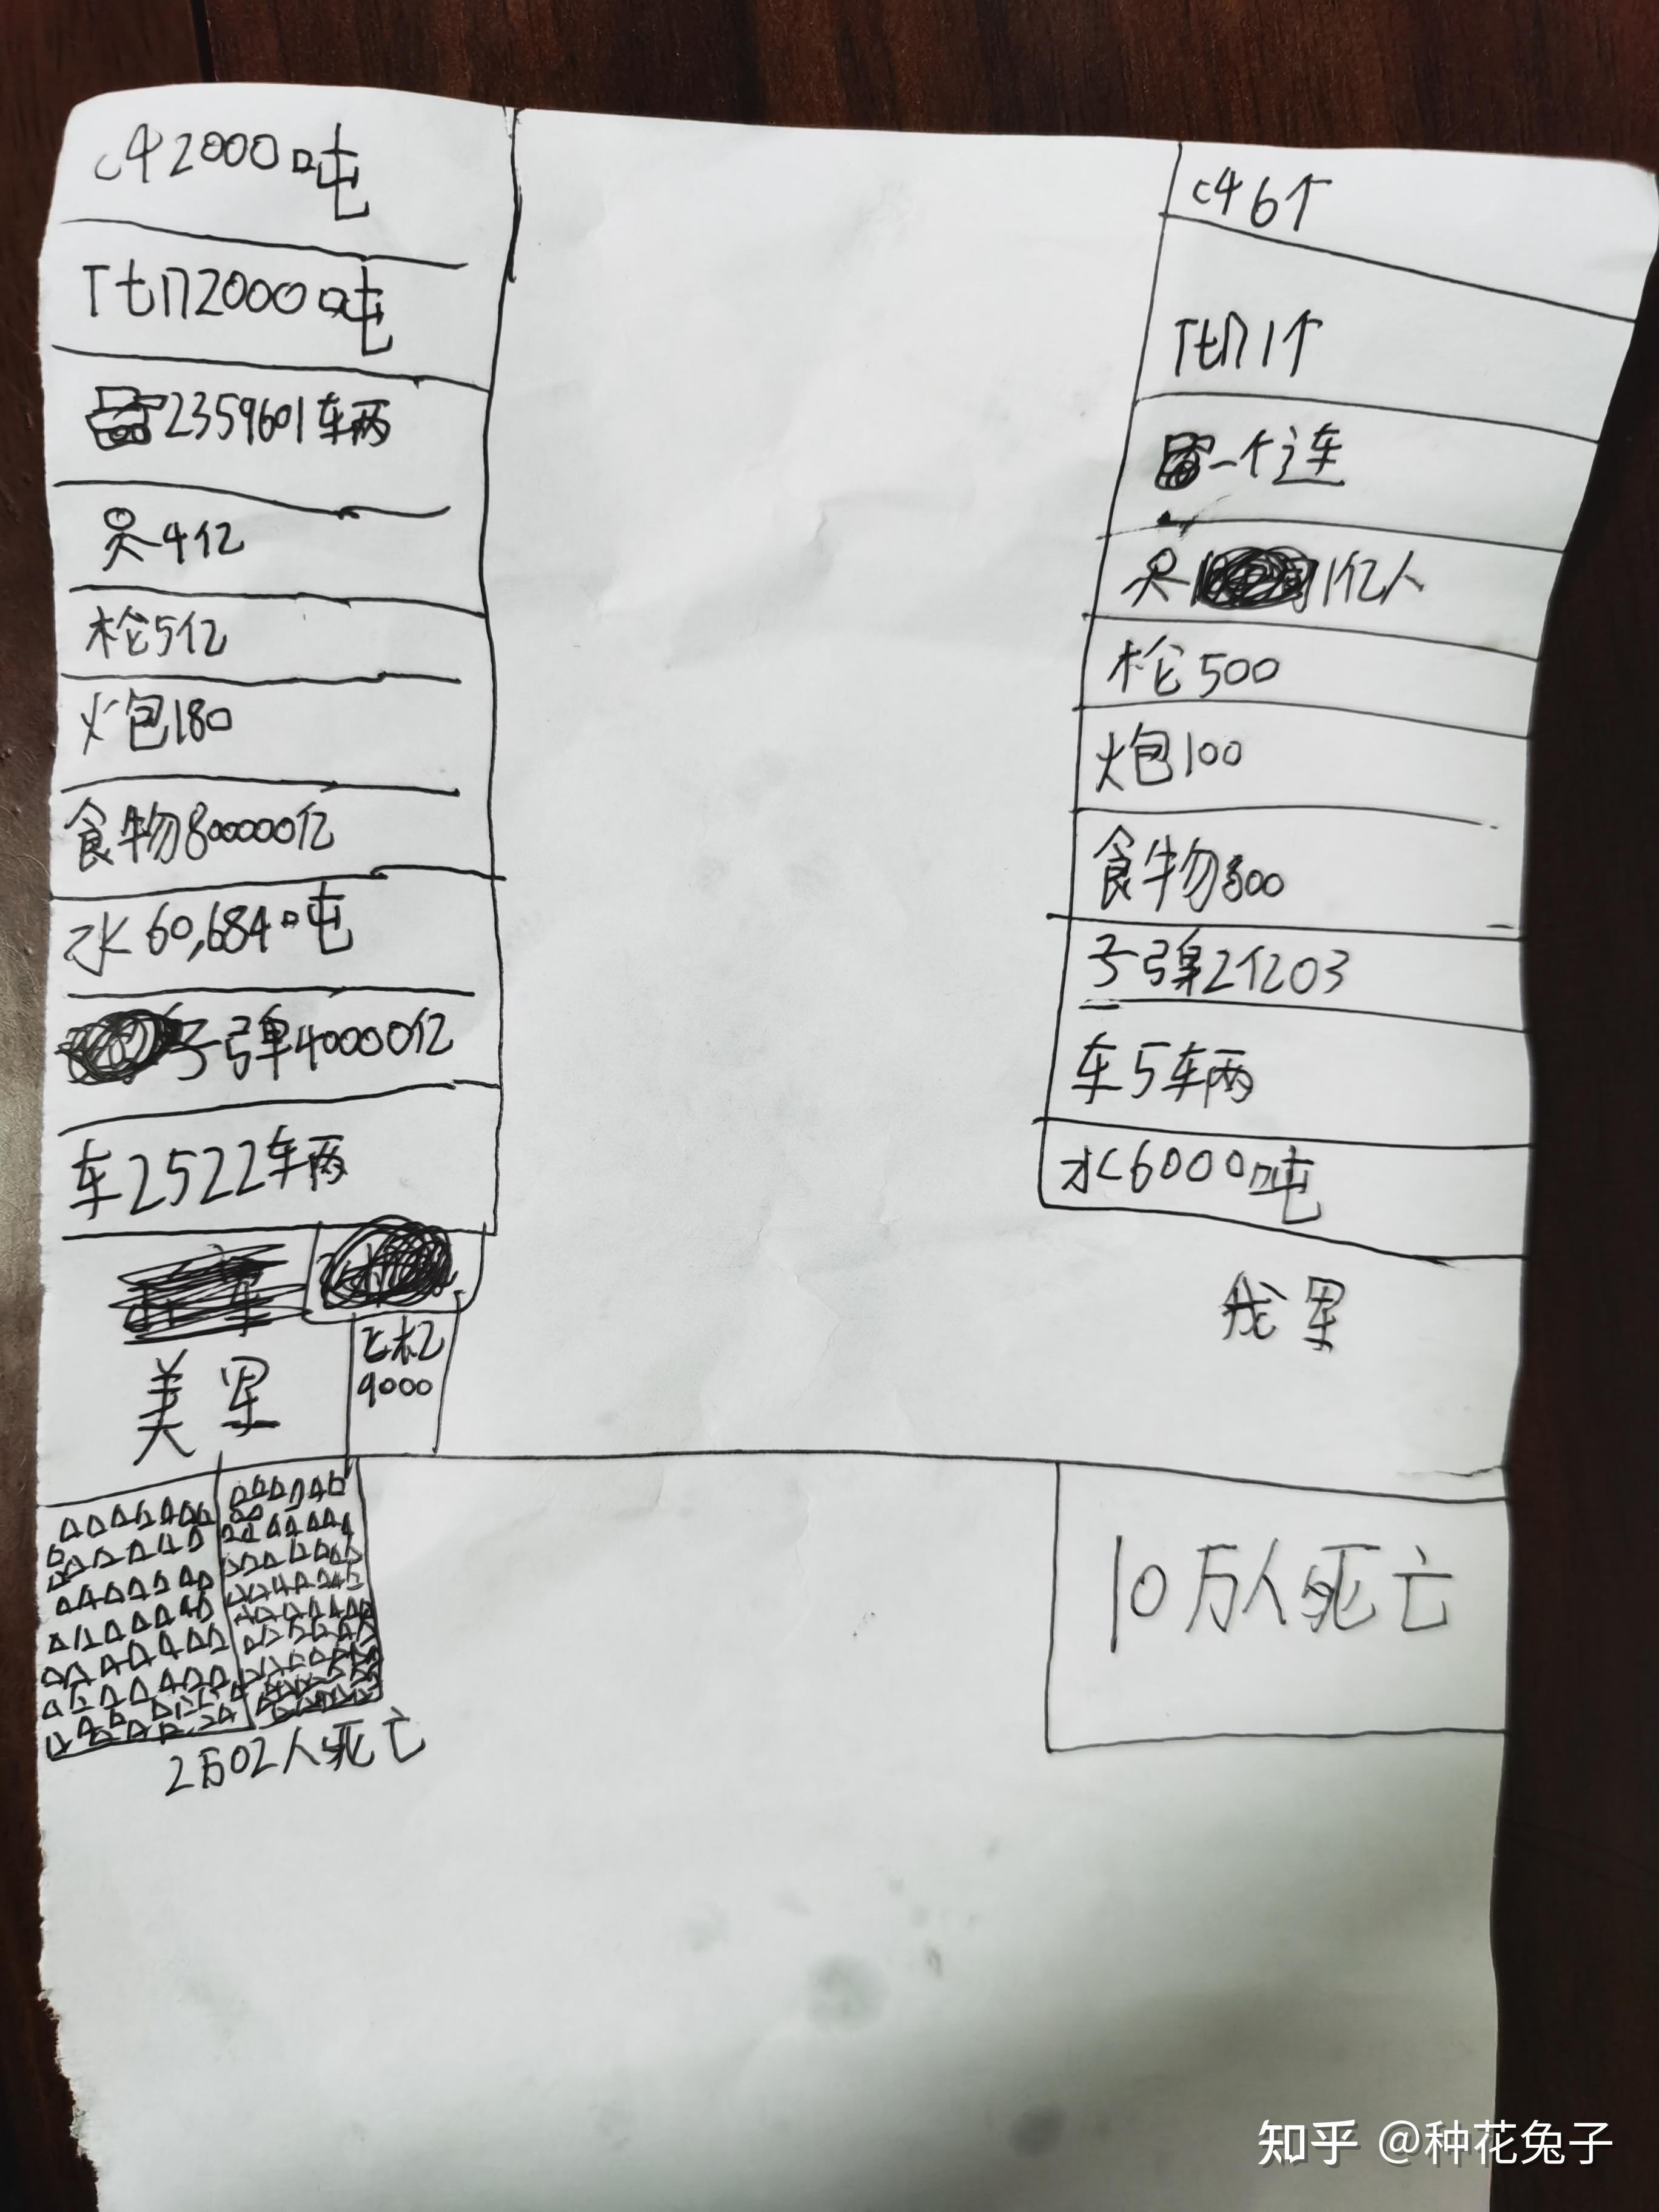 c4 2000吨
Ttn2000吨
2359601车两
4亿
枪5亿
火包180
食物800000亿
水60,684吨
子弹40000亿
车2522车两
飞机
9000
美军
2万02人死亡
c4 6个
Ttn1个
一个连
1亿人
枪500
火包100
食物800
子弹2亿03
车5车两
水6000吨
我军
10万人死亡
知乎 @种花兔子